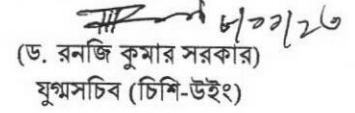 (ড. রনজি কুমার সরকার)
যুগ্মসচিব (চিশি-উইং)